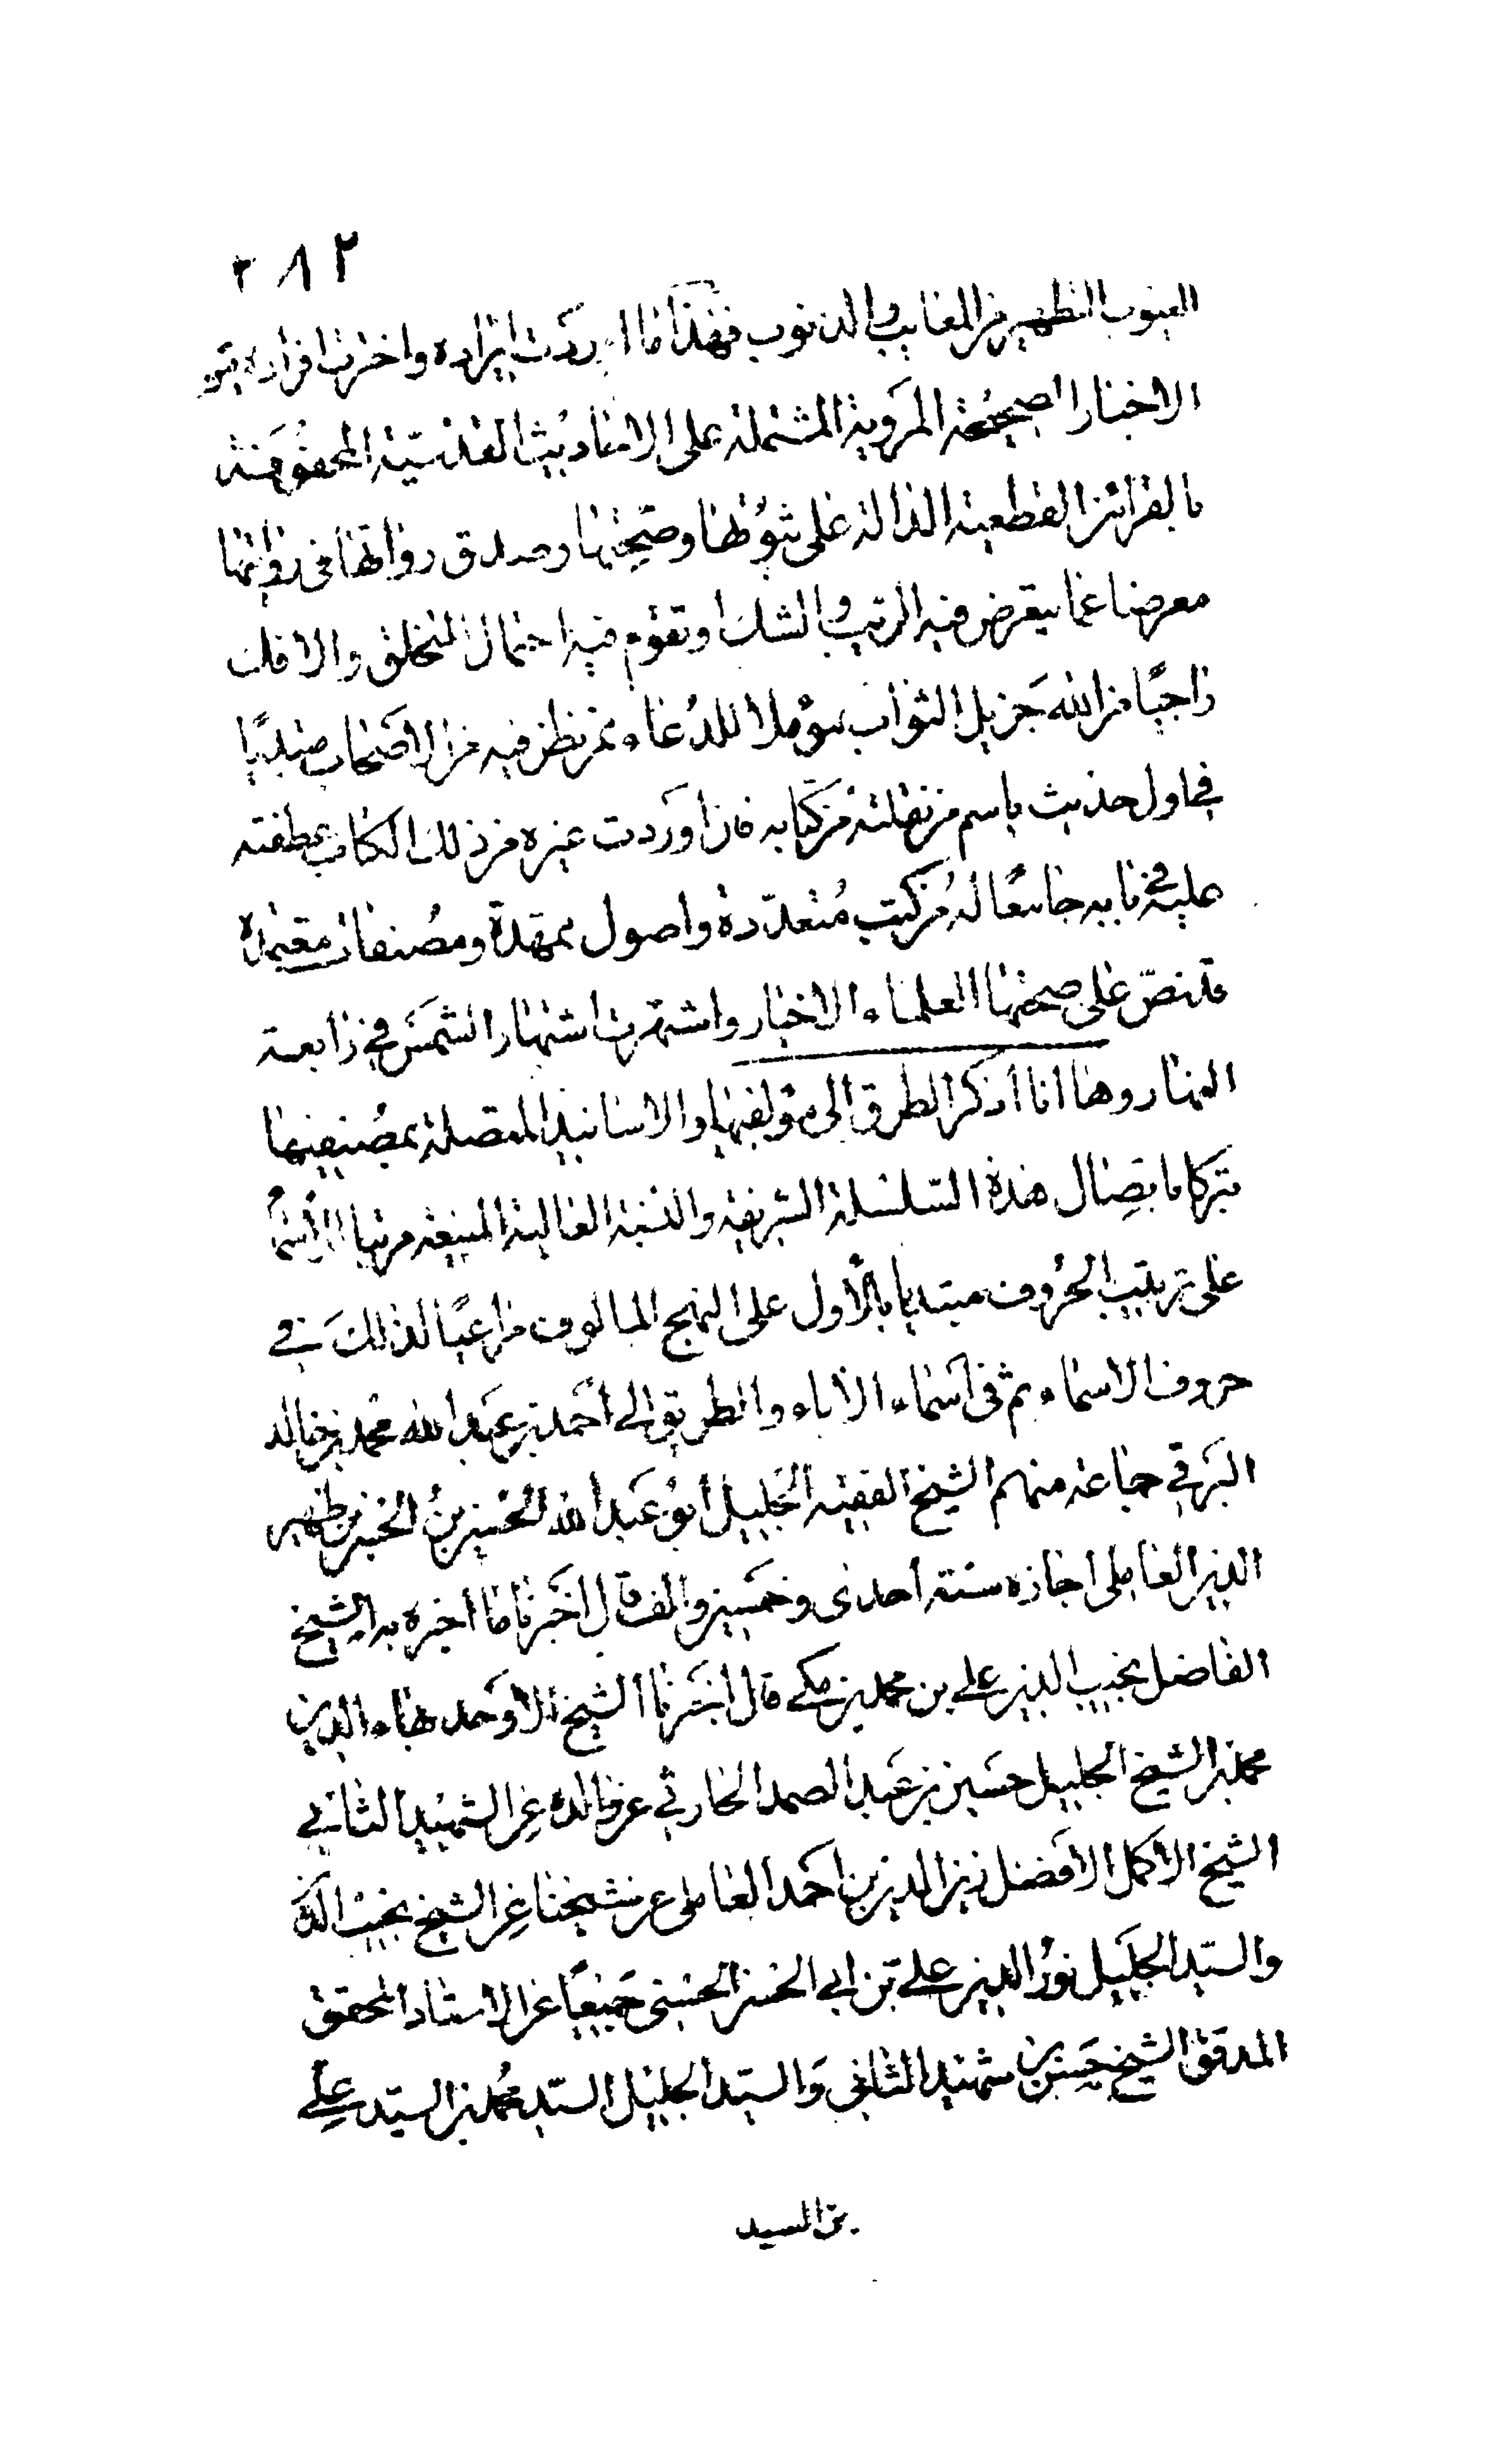 ٢٨٢
العيوب التطهير من المعايب والذنوب فهذا ما اردت ايراده واخترت افراده من
الاخبار الصحيحة المروية المشتملة على الاحاديث القدسية المحفوفة
بالقرائن القطعية الدالة على ثبوتها وصحتها وصدق رواتها في روايتها
معرضا عما يعرض فيه الريب والشك او تقوم فيه احتمال التخلق والافك
راجيًا من الله جزيل الثواب مؤملا للدعاء ممن نظر فيه من الاصحاب مبتديًا
في اول حديث باسم من نقلته من كتابه فان اوردت غيره من ذلك الكتاب عطفته
عليه في بابه جامعًا له من كتب مُتعدّدة واصول ممهدة ومصُنفات معتمدة
قد نصّ على صحتها العلماء الاخيار واشتهرت اشتهار الشمس في رابعة
النهار وها انا اذكر الطرق الى مؤلفيها والاسانيد المتصلة بمصُنفيها
تبركا باتصِال هذه السّلسلة الشريفة والنسبة العالية المنيفة مرتبا للأسماء
على ترتيب الحُروف مبتديا بالأول على النهج المالوف مراعيًا لذلكَ في
حروف الاسماء ثم في اسَماء الآباء والطريق الى احَمد بن عبد الله محمد بن خالد
البَرقي جماعة منهم الشيخ الفقيه الجَليل ابوُ عَبد الله الحُسين بنُ الحَسن بن ظهير
الدين العاملي اجازه سنة احدى وخمَسين والف قال اخَبرنا ما اخبره به الشيخ
الفاضل نجيب الدين علي بن محمد بن مكي قال اخبَرنا الشيخ الاوَحد بهاء الدين
محمد بن الشيخ الجليل حسَين بن عَبد الصمد الحارثي عن والده عن الشهيد الثاني
الشيخ الاكمل الافَضل زين الدين بن احمَد العاملي عن شيخنا عن الشيخ نجيب الدين
والسيّد الجَليَل نورُ الدين علي بن ابي الحسن الحسيني جَميعًا عن الاستاد المحقق
المدقق الشيخ حسَن بن شهيد الثاني وَالسيّد الجليل السيّد محُمد بن السيّد علي
بن السيد